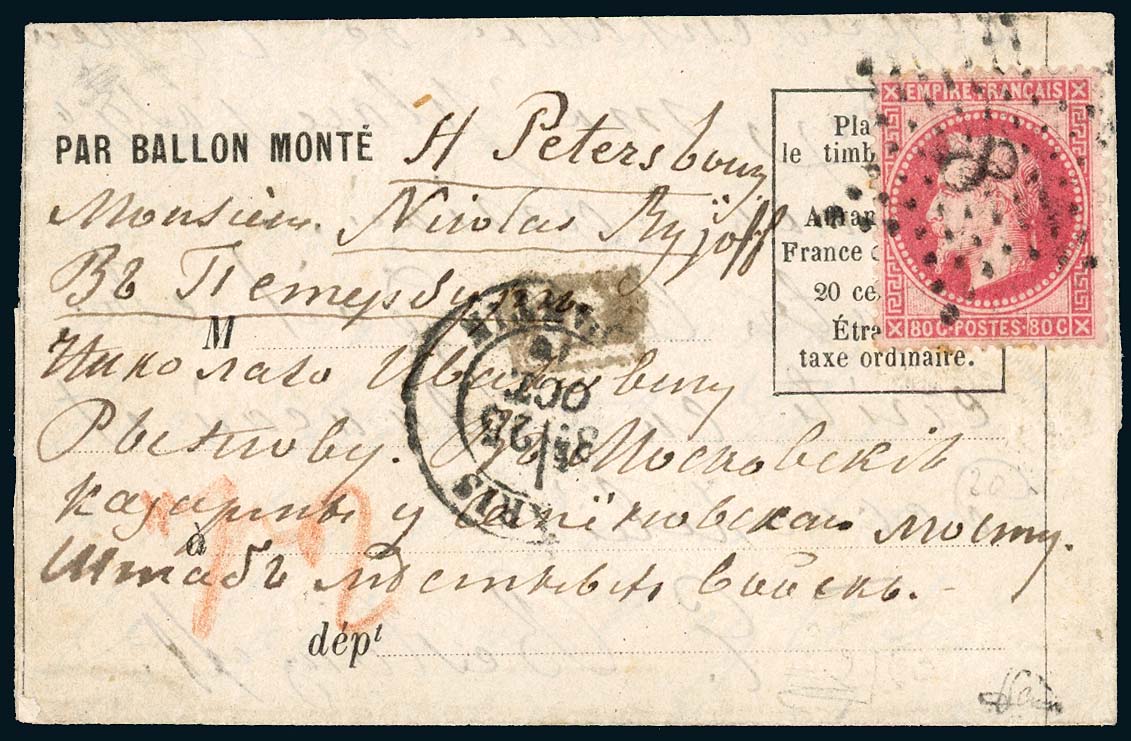 PAR BALLON MONTÉ
St Petersbourg
Monsieur Nicolas Ryjoff
Въ Петербургъ
M
Николаю Ивановичу
Рыжову. Въ Московскихъ
казармахъ у Семёновскаго мосту.
à
Штабъ мѣстныхъ войскъ.
dépt
Pla
le timb
Affran
France
20 ce
Étra
taxe ordinaire.
EMPIRE FRANÇAIS
8
80C·POSTES·80C
PARIS
3E
25
OCT.
20